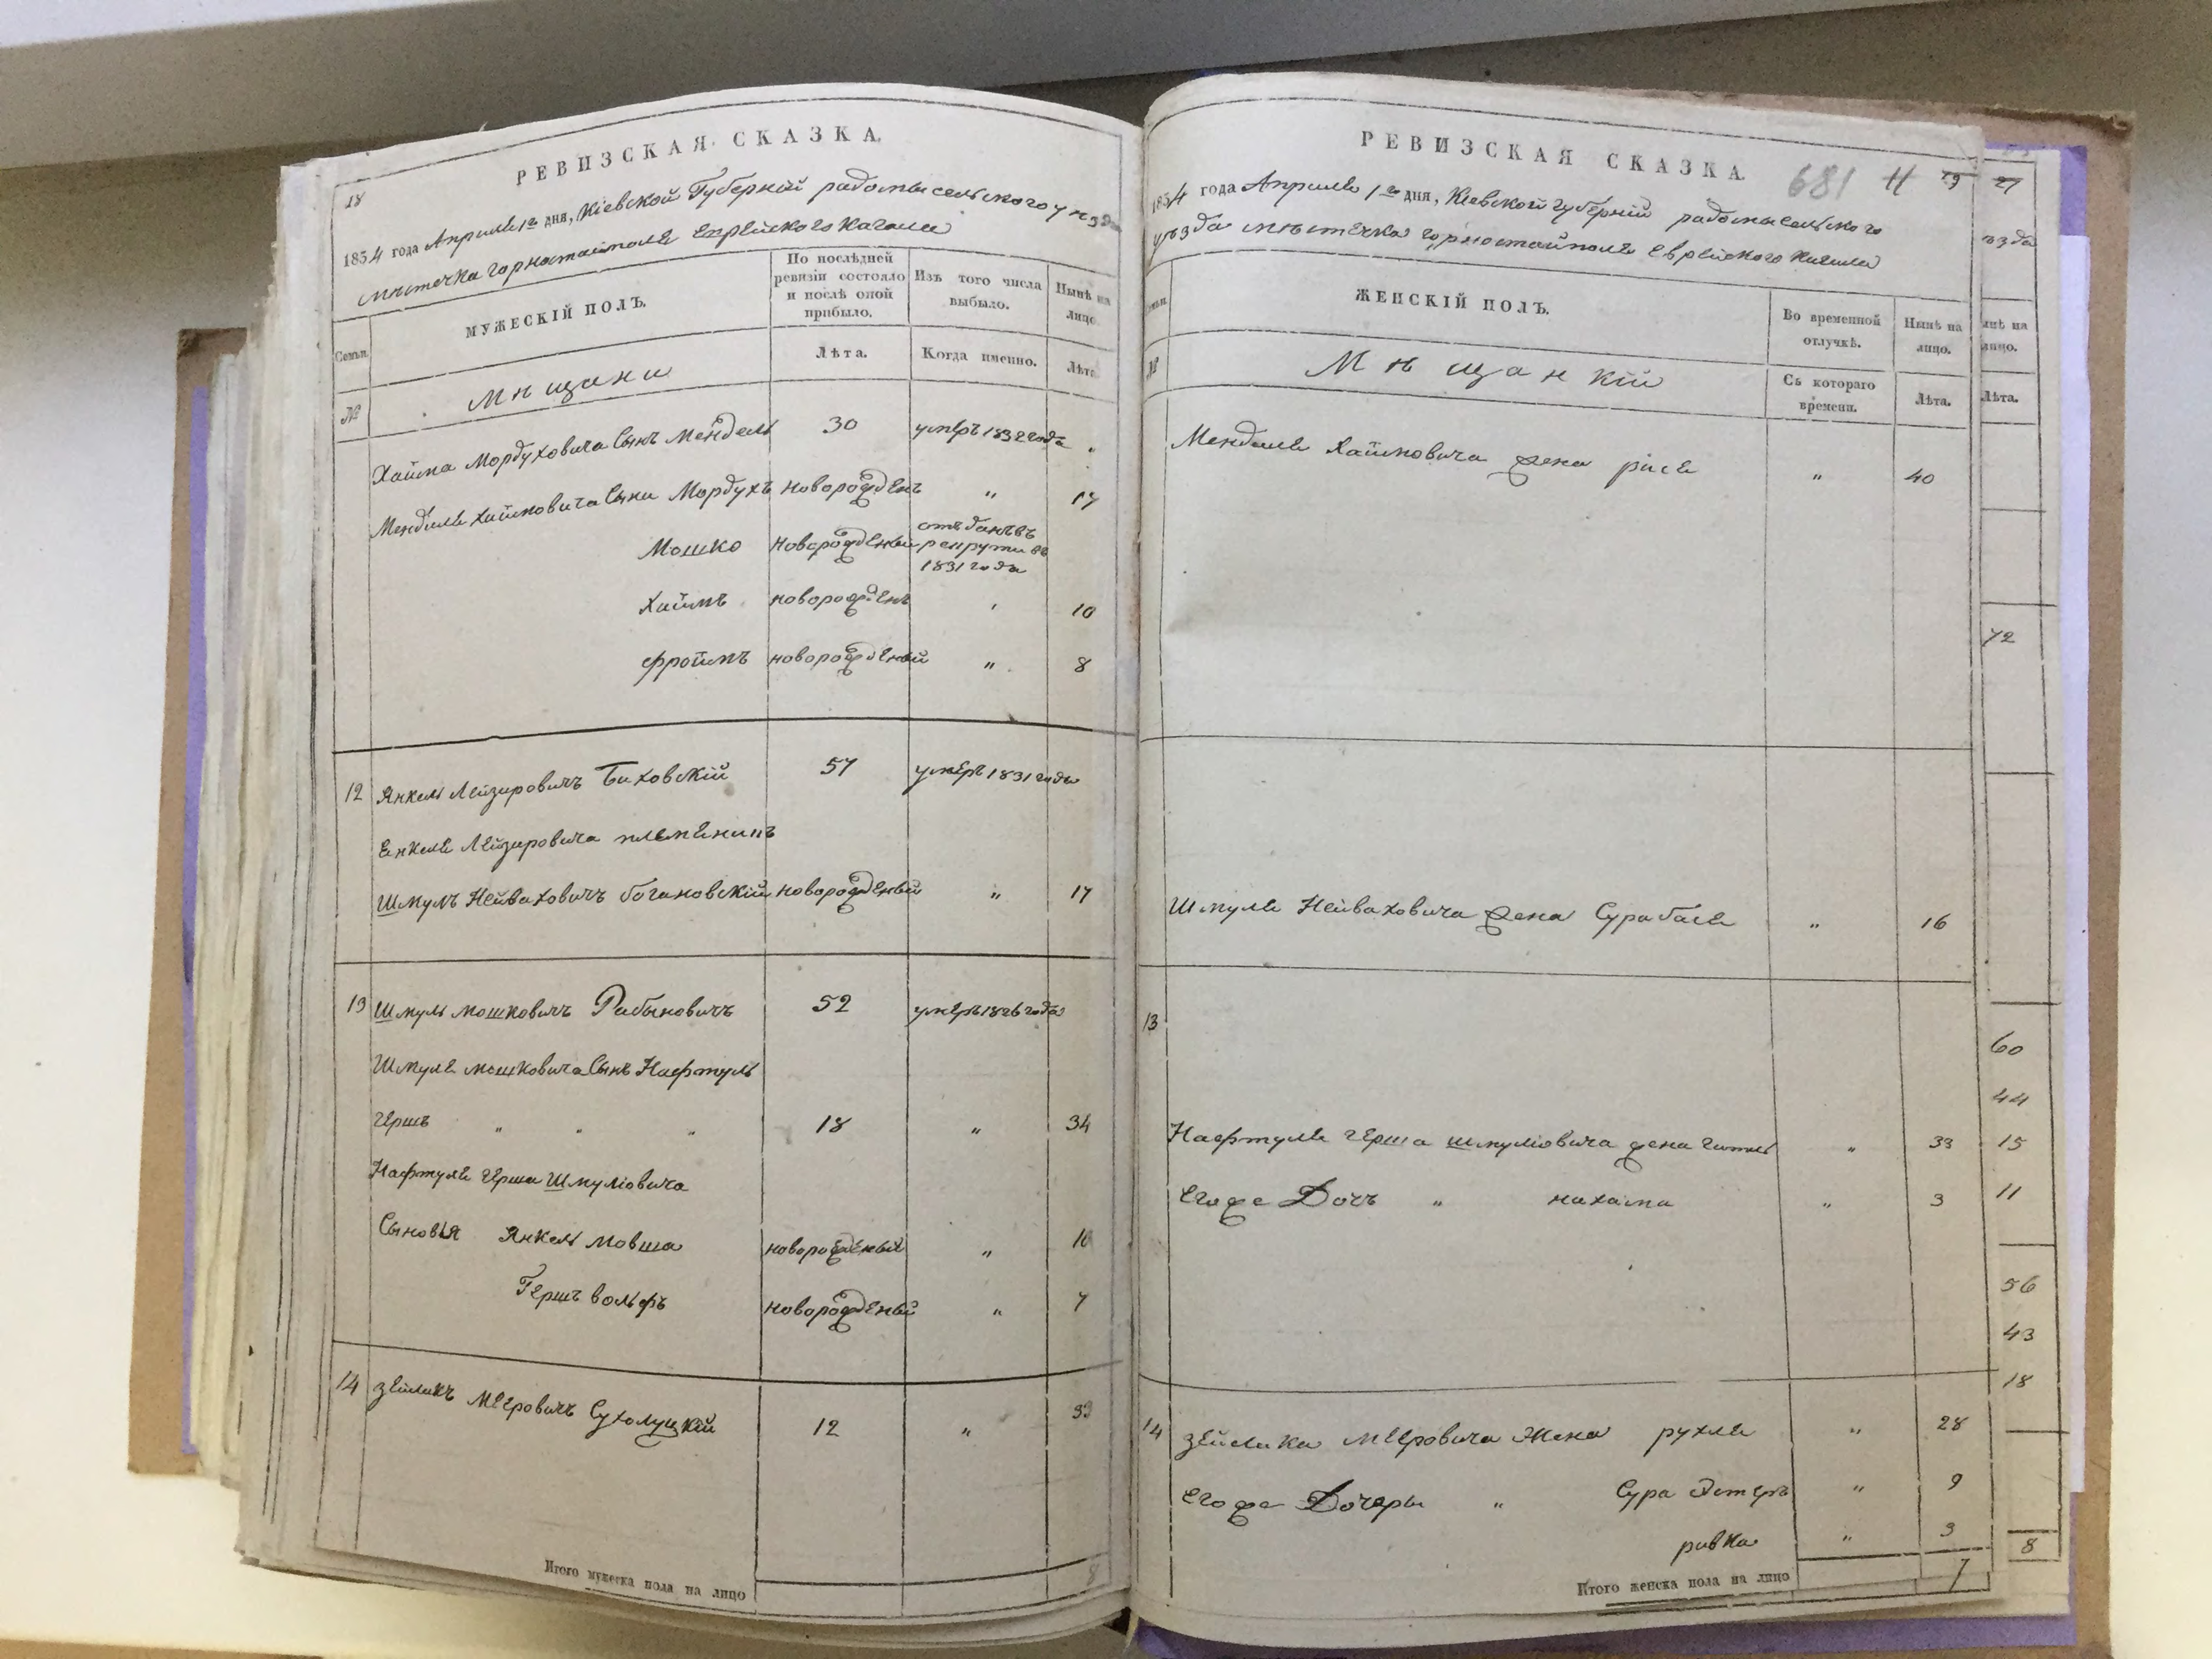 18
РЕВИЗСКАЯ СКАЗКА.
1834 года Апрелѣ 1го дня, Кіевской Губерній радомысельского уѣзда
мѣстечка горностайполѣ Еврейского Кагала
Семьи.
МУЖЕСКІЙ ПОЛЪ.
По послѣдней ревизіи состояло и послѣ оной прибыло.
Изъ того числа выбыло.
Нынѣ на лицо
№
Мѣщани
Лѣта.
Когда именно.
Лѣта
Хаима Мордуховича Сынъ Мендель 30 умеръ 1832 года "
Менделя Хаймовича Сыни Мордухъ новорожденъ " 17
Мошко новорожденый отъданъ въ рекруты въ 1831 года
Хаимъ новорожденъ " 10
Фроимъ новорожденый " 8
12 Янкель Лейзировичъ Быховскій 57 умеръ 1831 года
Енкеля Лейзировича племеникъ
Шмулъ Нейваховичъ богановскій новорожденый " 17
13 Шмуль мошковичъ Рабыновичъ 52 умеръ 1826 года
Шмуля мошковича Сынъ Нафтуль
гершъ " " " 18 " 34
Нафтуля герша Шмуліовича
Сыновья Янкель мовша новорожденый " 10
Гершъ вольфъ новорожденый " 7
14 зейликъ Мееровичъ Сухолуцкій 12 " 33
Итого мужеска пола на лицо 8
РЕВИЗСКАЯ СКАЗКА.
681 11 19
1834 года Апрелѣ 1го дня, Кіевской губерній радомысельского
уѣзда мѣстечка горностайполѣ Еврейского Кагала
ЖЕНСКІЙ ПОЛЪ.
Во временной отлучкѣ.
Нынѣ на лицо.
№
Мѣщанкій
Съ котораго времени.
Лѣта.
Менделя Хаймовича жена рися " 40
Шмуля Нейваховича жена Сура бася " 16
13
Нафтуля герша шмуліовича жена гитль " 33
Егоже Дочъ " нахама " 3
14 зейлика Мееровича Жена рухля " 28
Егоже Дочеры " Сура Эстеръ " 9
ривка " 3
Итого женска пола на лицо 7
27
ѣзда
нѣ на лицо.
Лѣта.
72
60
44
15
11
56
43
18
8